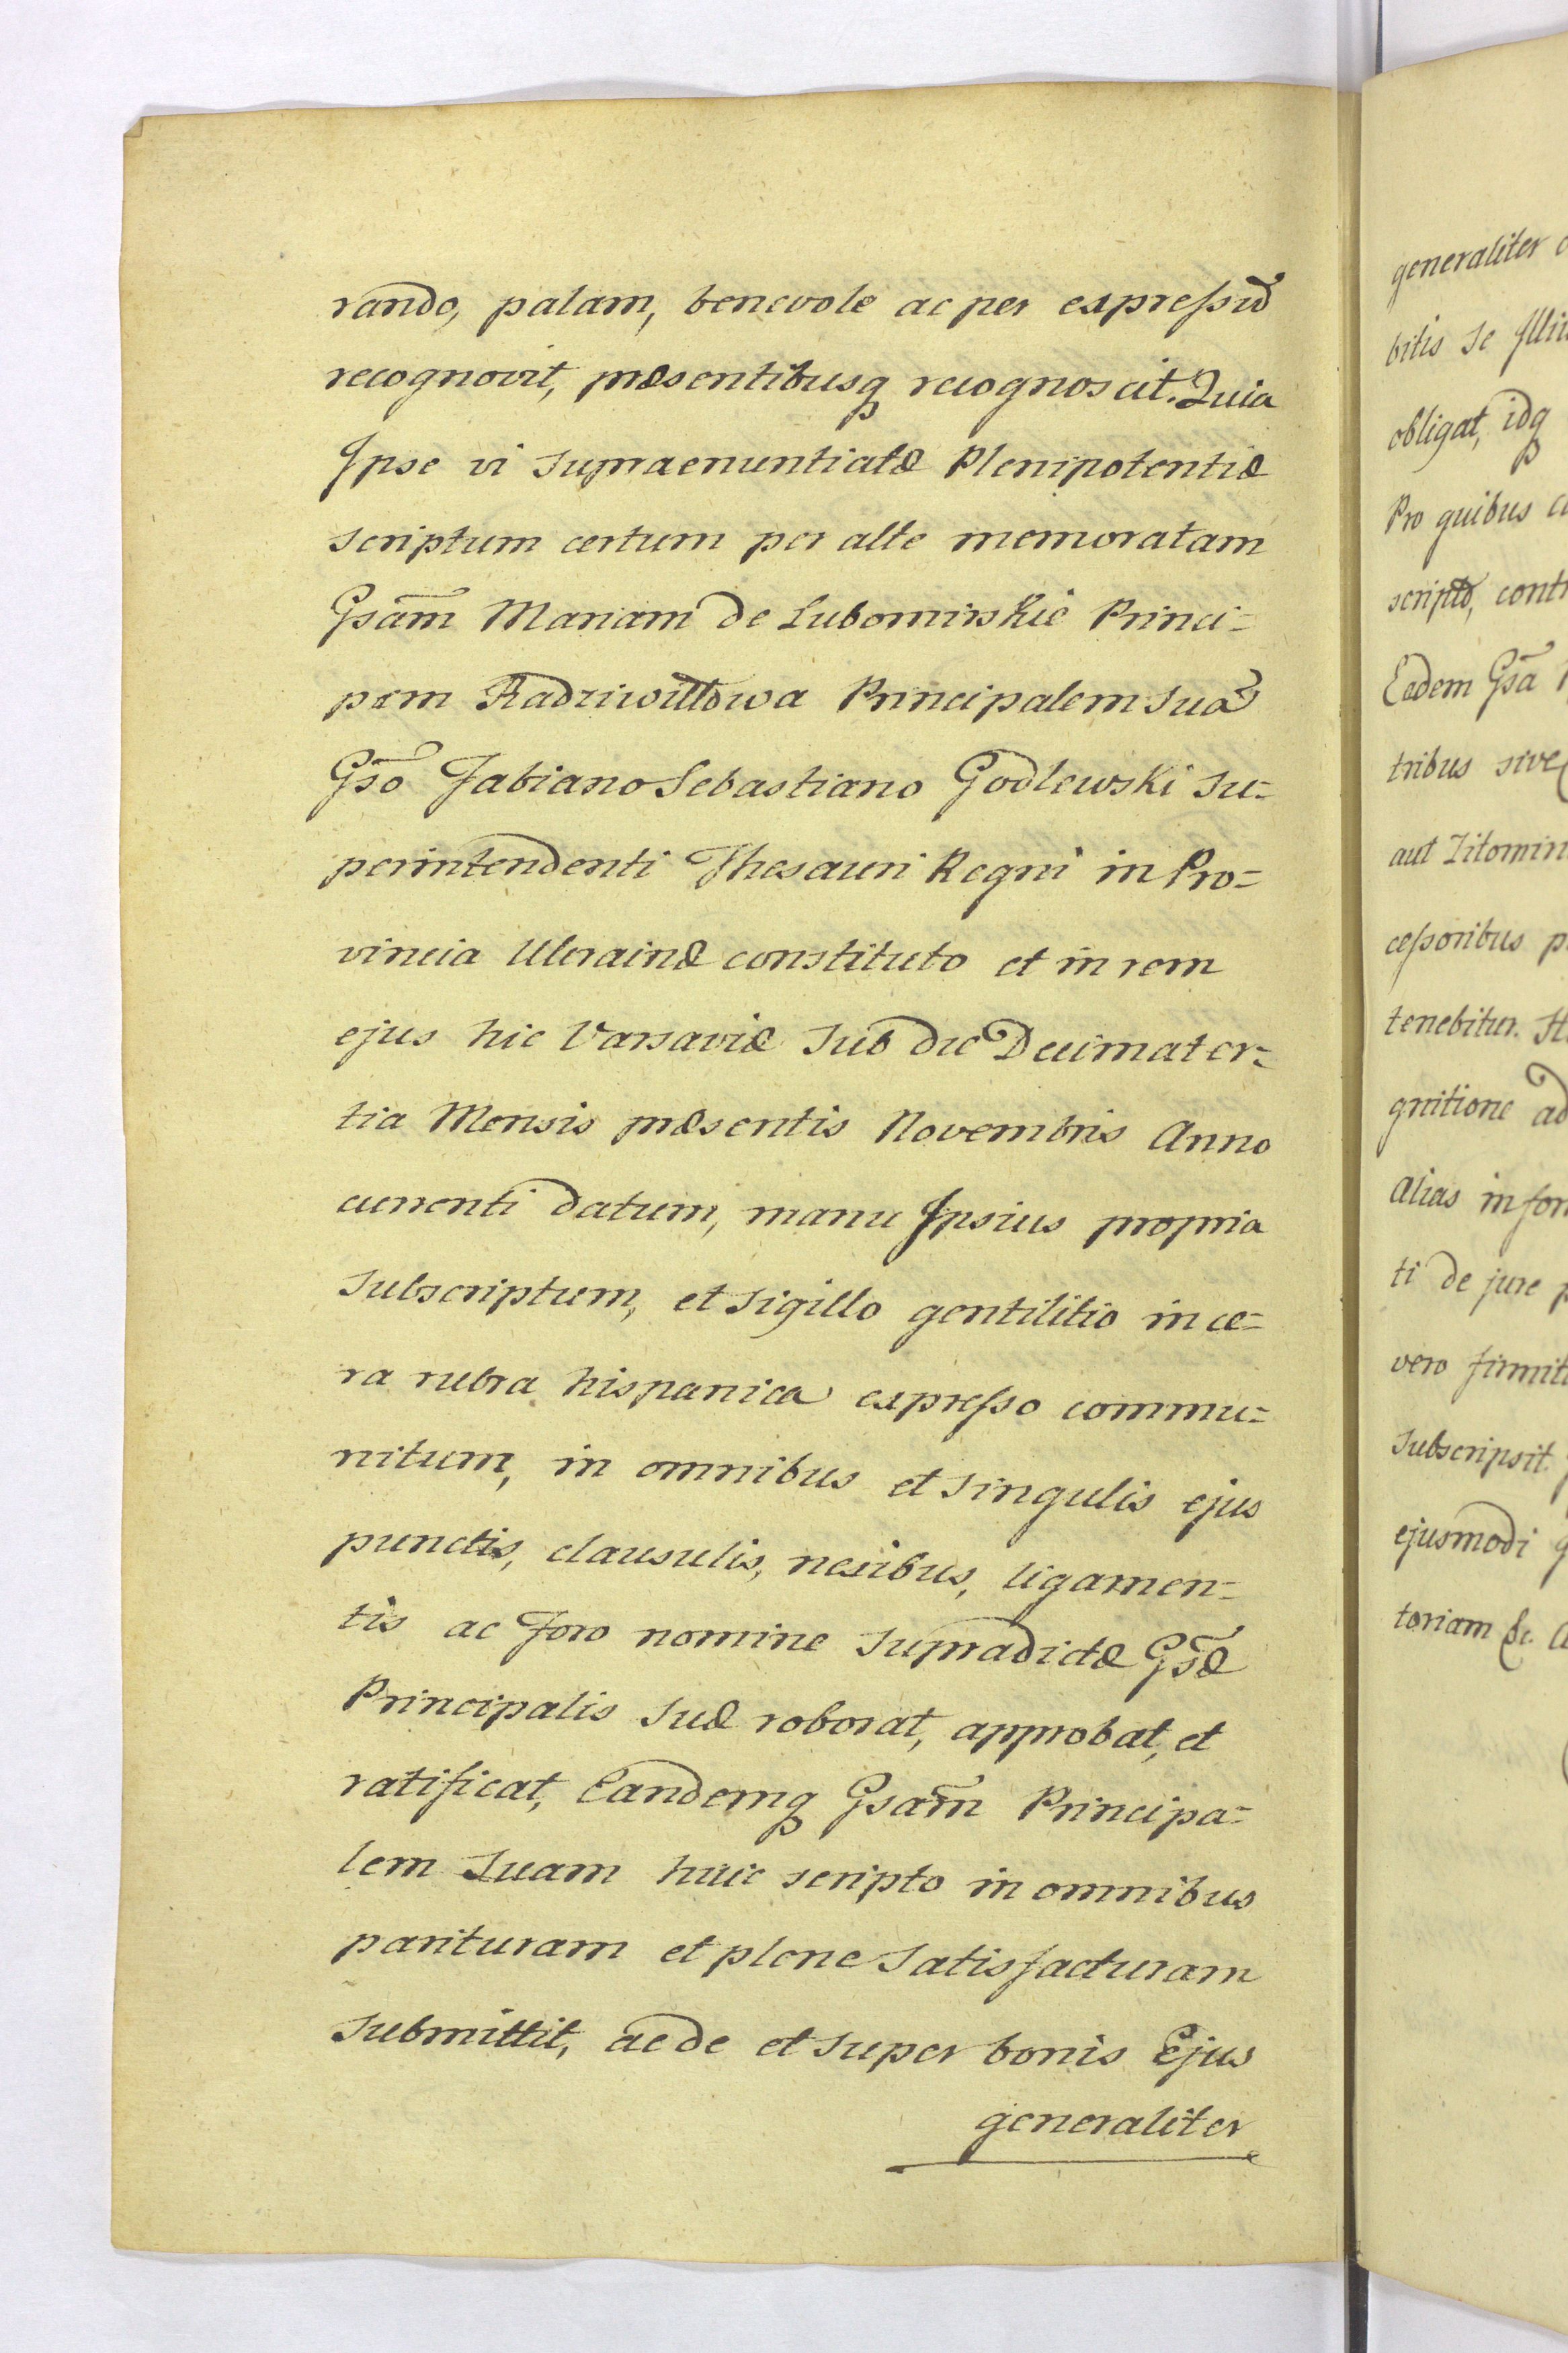 rando, palam, benevole ac per expressũ
recognovit, præsentibusq recognoscit. Quia
Ipse vi supraenuntiatæ Plenipotentiæ
scriptum certum per alte memoratam
Gsam̃ Mariam de Lubomirskie Princi=
pem Radziwiłłowa Principalem suã
Gsõ Fabiano Sebastiano Godlewski Su=
perintendenti Thesauri Regni in Pro=
vincia Ukrainæ constituto et in rem
ejus hic Varsaviæ sub die Decimater=
tia Mensis præsentis Novembris Anno
currenti datum, manu Ipsius propria
subscriptum, et sigillo gentilitio in ce=
ra rubra hispanica expresso commu=
nitum, in omnibus et singulis ejus
punctis, clausulis, nexibus, ligamen=
tis ac foro nomine supradictæ Gsæ̃
Principalis suæ roborat, approbat, et
ratificat, Eandemq Gsam̃ Principa=
lem Suam huic scripto in omnibus
parituram et plene satisfacturam
submittit, ac de et super bonis Ejus
generaliter
generaliter
bitis se
obligat, idq
Pro quibus
scripto,
Eadem Gsã
tribus sive
aut
cessoribus
tenebitur.
gnitione
alias in
ti de jure
vero
subscripsit.
ejusmodi
toriam &c.